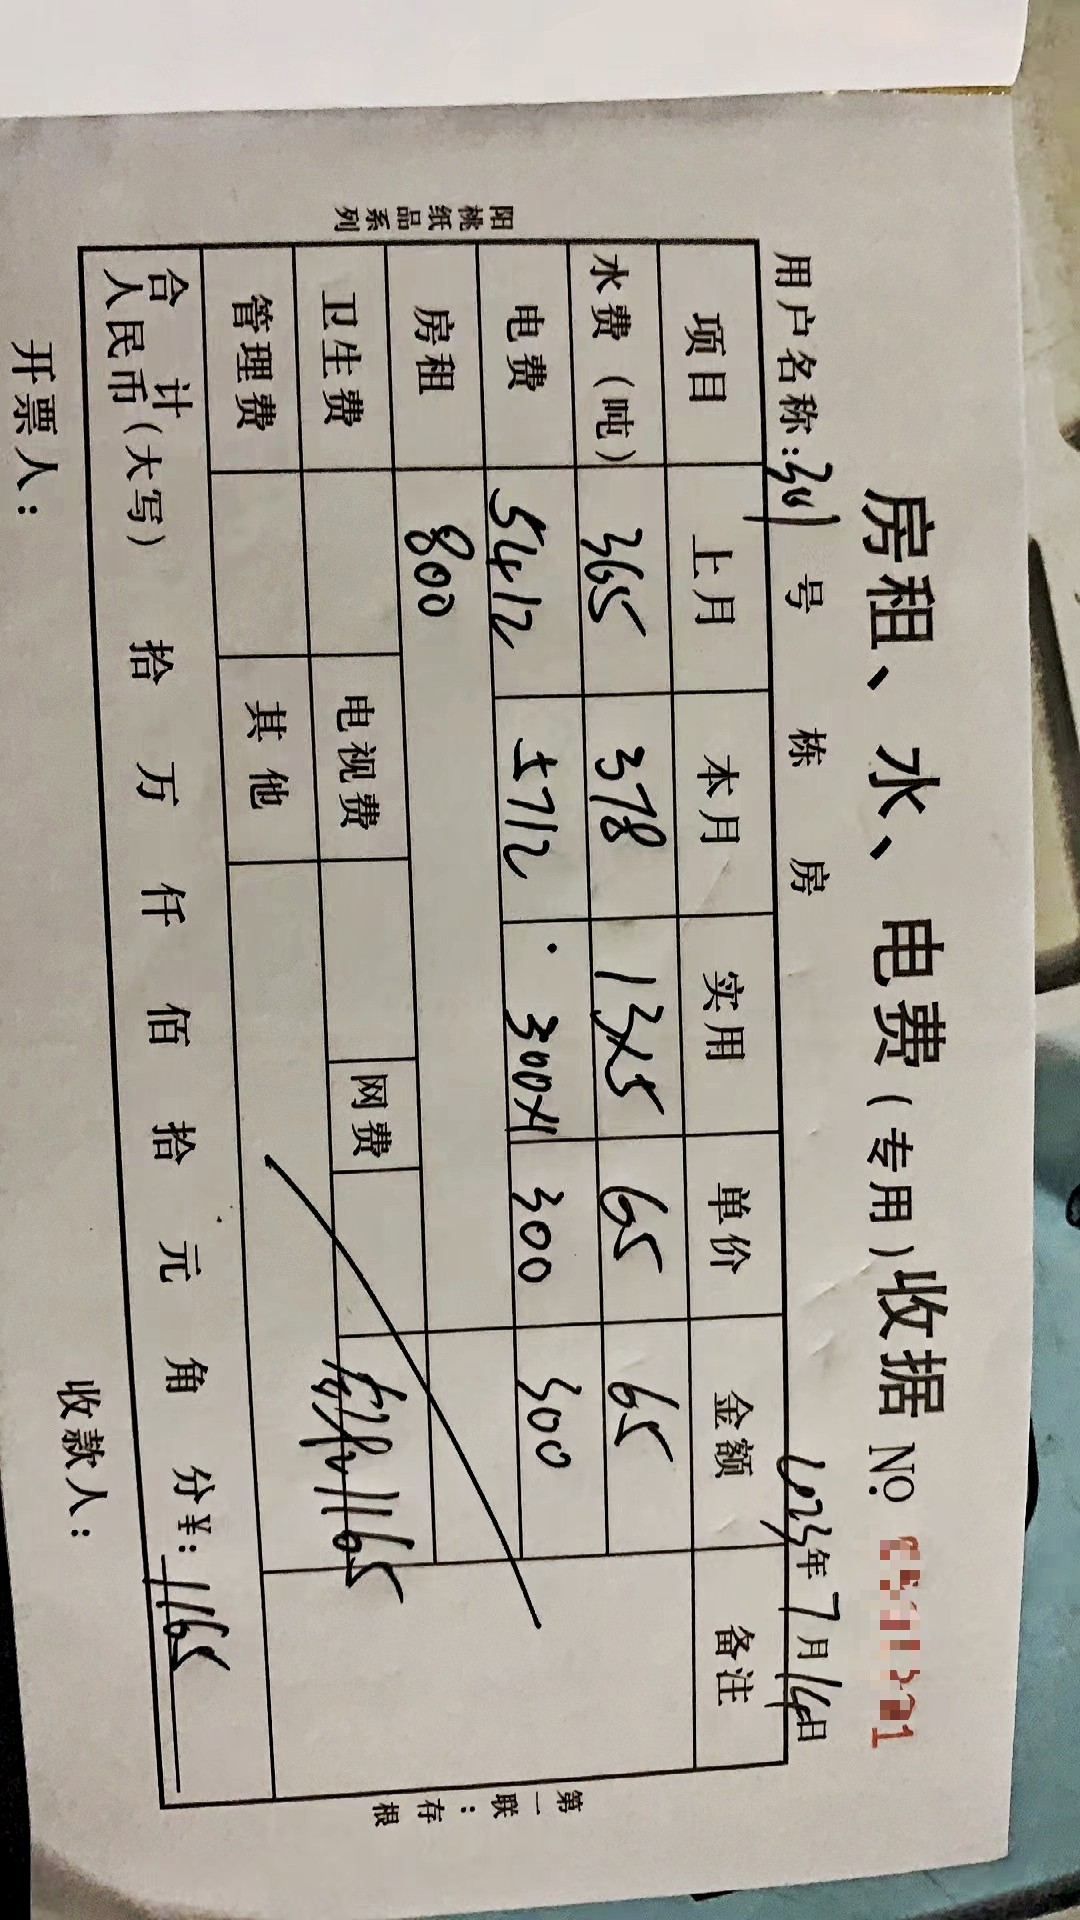 房租、水、电费(专用)收据 №
用户名称:301 号 栋 房 2023年7月14日
项目 上月 本月 实用 单价 金额 备注
水费(吨) 365 378 13×5 65 65
电费 5412 5712 300×1 300 300
房租 800
卫生费 电视费 网费
管理费 其他 1165
合计
人民币(大写) 拾 万 仟 佰 拾 元 角 分¥:1165
开票人: 收款人:
阳桃纸品系列
第一联:存根